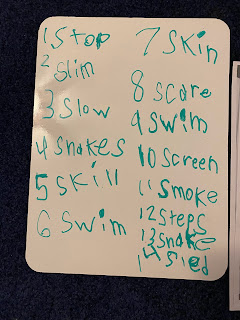 1 Stop
2 Slim
3 Slow
4 Snakes
5 Skill
6 Swim
7 Skin
8 Score
9 Swim
10 Screen
11 Smoke
12 Steps
13 Snake
14 Sled